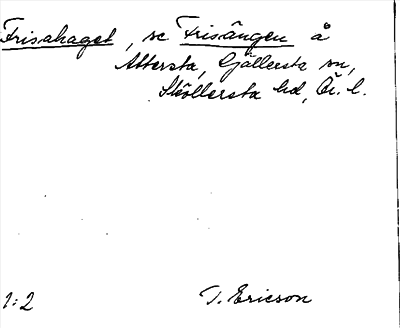 Frisahaget, se Frisängen å
Attersta, Gällersta sn,
Sköllersta hd, Ör. l.
1:2 T. Ericson